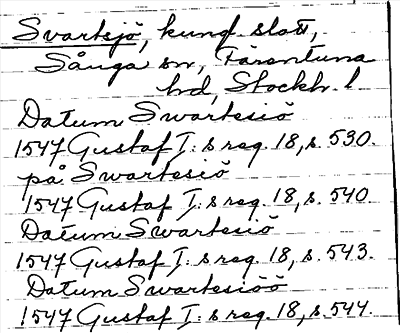 Svartsjö, kungl. slott,
Sånga sn, Färentuna
hd, Stockh. l
Datum Swartesiö
1547 Gustaf I: s reg. 18, s. 530.
på Swartesiö
1547 Gustaf I: s reg. 18, s. 540.
Datum Swartesiö
1547 Gustaf I: s reg. 18, s. 543.
Datum Swartesiöö
1547 Gustaf I: s reg. 18, s. 544.